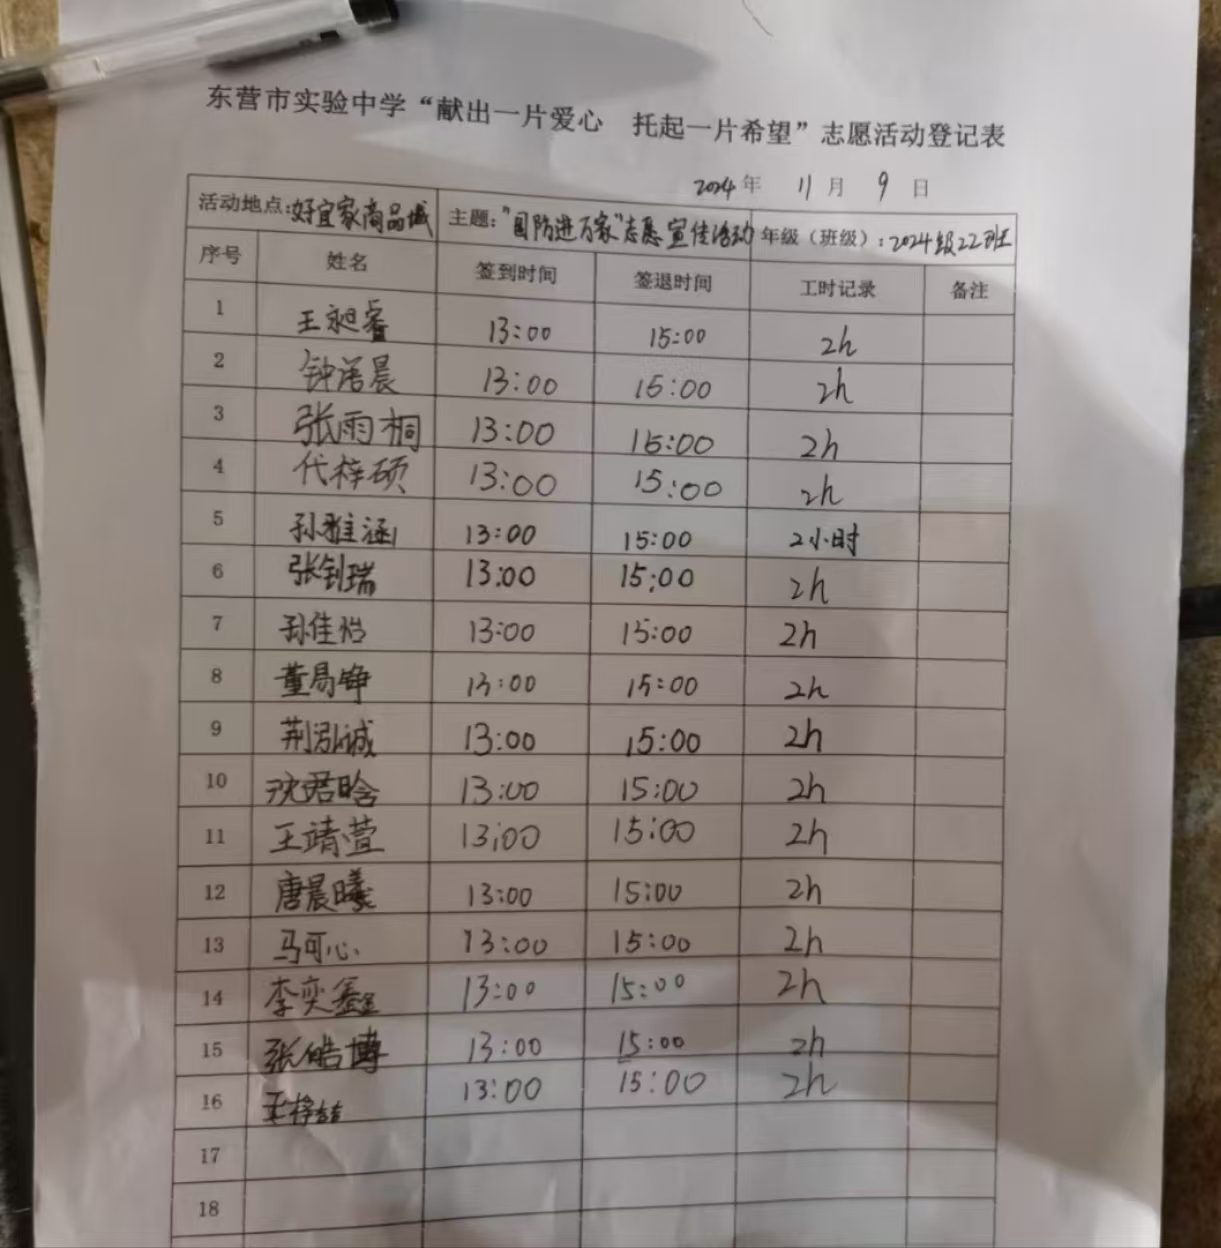 东营市实验中学“献出一片爱心 托起一片希望”志愿活动登记表
2024年 11月 9日
活动地点:好宜家商品城 主题:"国防进万家"志愿宣传活动 年级（班级）:2024级22班
序号 姓名 签到时间 签退时间 工时记录 备注
1 王昶睿 13:00 15:00 2h
2 钟诺晨 13:00 15:00 2h
3 张雨桐 13:00 15:00 2h
4 代梓硕 13:00 15:00 2h
5 孙雅涵 13:00 15:00 2小时
6 张钊瑞 13:00 15:00 2h
7 孙佳怡 13:00 15:00 2h
8 董易铮 13:00 15:00 2h
9 荆泓诚 13:00 15:00 2h
10 沈君晗 13:00 15:00 2h
11 王靖萱 13:00 15:00 2h
12 唐晨曦 13:00 15:00 2h
13 马可心 13:00 15:00 2h
14 李奕鑫 13:00 15:00 2h
15 张皓博 13:00 15:00 2h
16 13:00 15:00 2h
17
18